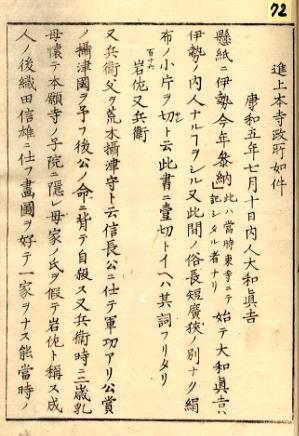 72
進上本寺政所如件
康和五年七月十日内人大和真吉
懸紙ニ伊勢今年参納 此ハ當時東寺ニテ記シタル者ナリ 始テ大和真吉ハ
伊勢ノ内人ナルコヲシル又此間ノ俗長短廣狹ノ別ナク絹
布ノ小片ヲ切ト云此書ニ壹切トイヘハ其詞フリタリ
百十六
岩佐又兵衛
又兵衛父ヲ荒木攝津守ト云信長公ニ仕テ軍功アリ公賞
ノ攝津國ヲ予フ後公ノ命ニ背テ自殺ス又兵衛時ニ二歳乳
母懷テ本願寺ノ子院ニ隠レ母家ノ氏ヲ假テ岩佐ト稱ス成
人ノ後織田信雄ニ仕フ畫圖ヲ好テ一家ヲナス能當時ノ